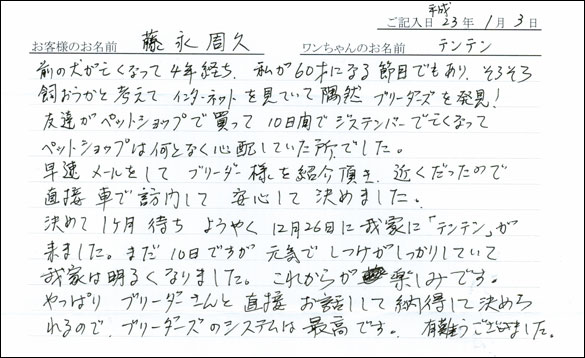 平成
ご記入日 23年 1月 3日
お客様のお名前 藤永周久 ワンちゃんのお名前 テンテン
前の犬が亡くなって4年経ち、私が60才になる節目でもあり、そろそろ
飼おうかと考えて インターネットを見ていて 偶然 ブリーダーズを発見!
友達がペットショップで買って 10日間でジステンバーで亡くなって
ペットショップは何となく心配していた所でした。
早速 メールをして ブリーダー様を紹介頂き 近くだったので
直接 車で訪門して 安心して 決めました。
決めて 1ヶ月 待ち ようやく 12月26日に我家に「テンテン」が
来ました。まだ 10日ですが 元気で しつけがしっかりしていて
我家は明るくなりました。これからが 楽しみです。
やっぱり ブリーダーさんと 直接 お話しして 納得して決めら
れるので、ブリーダーズのシステムは 最高です。 有難うございました。